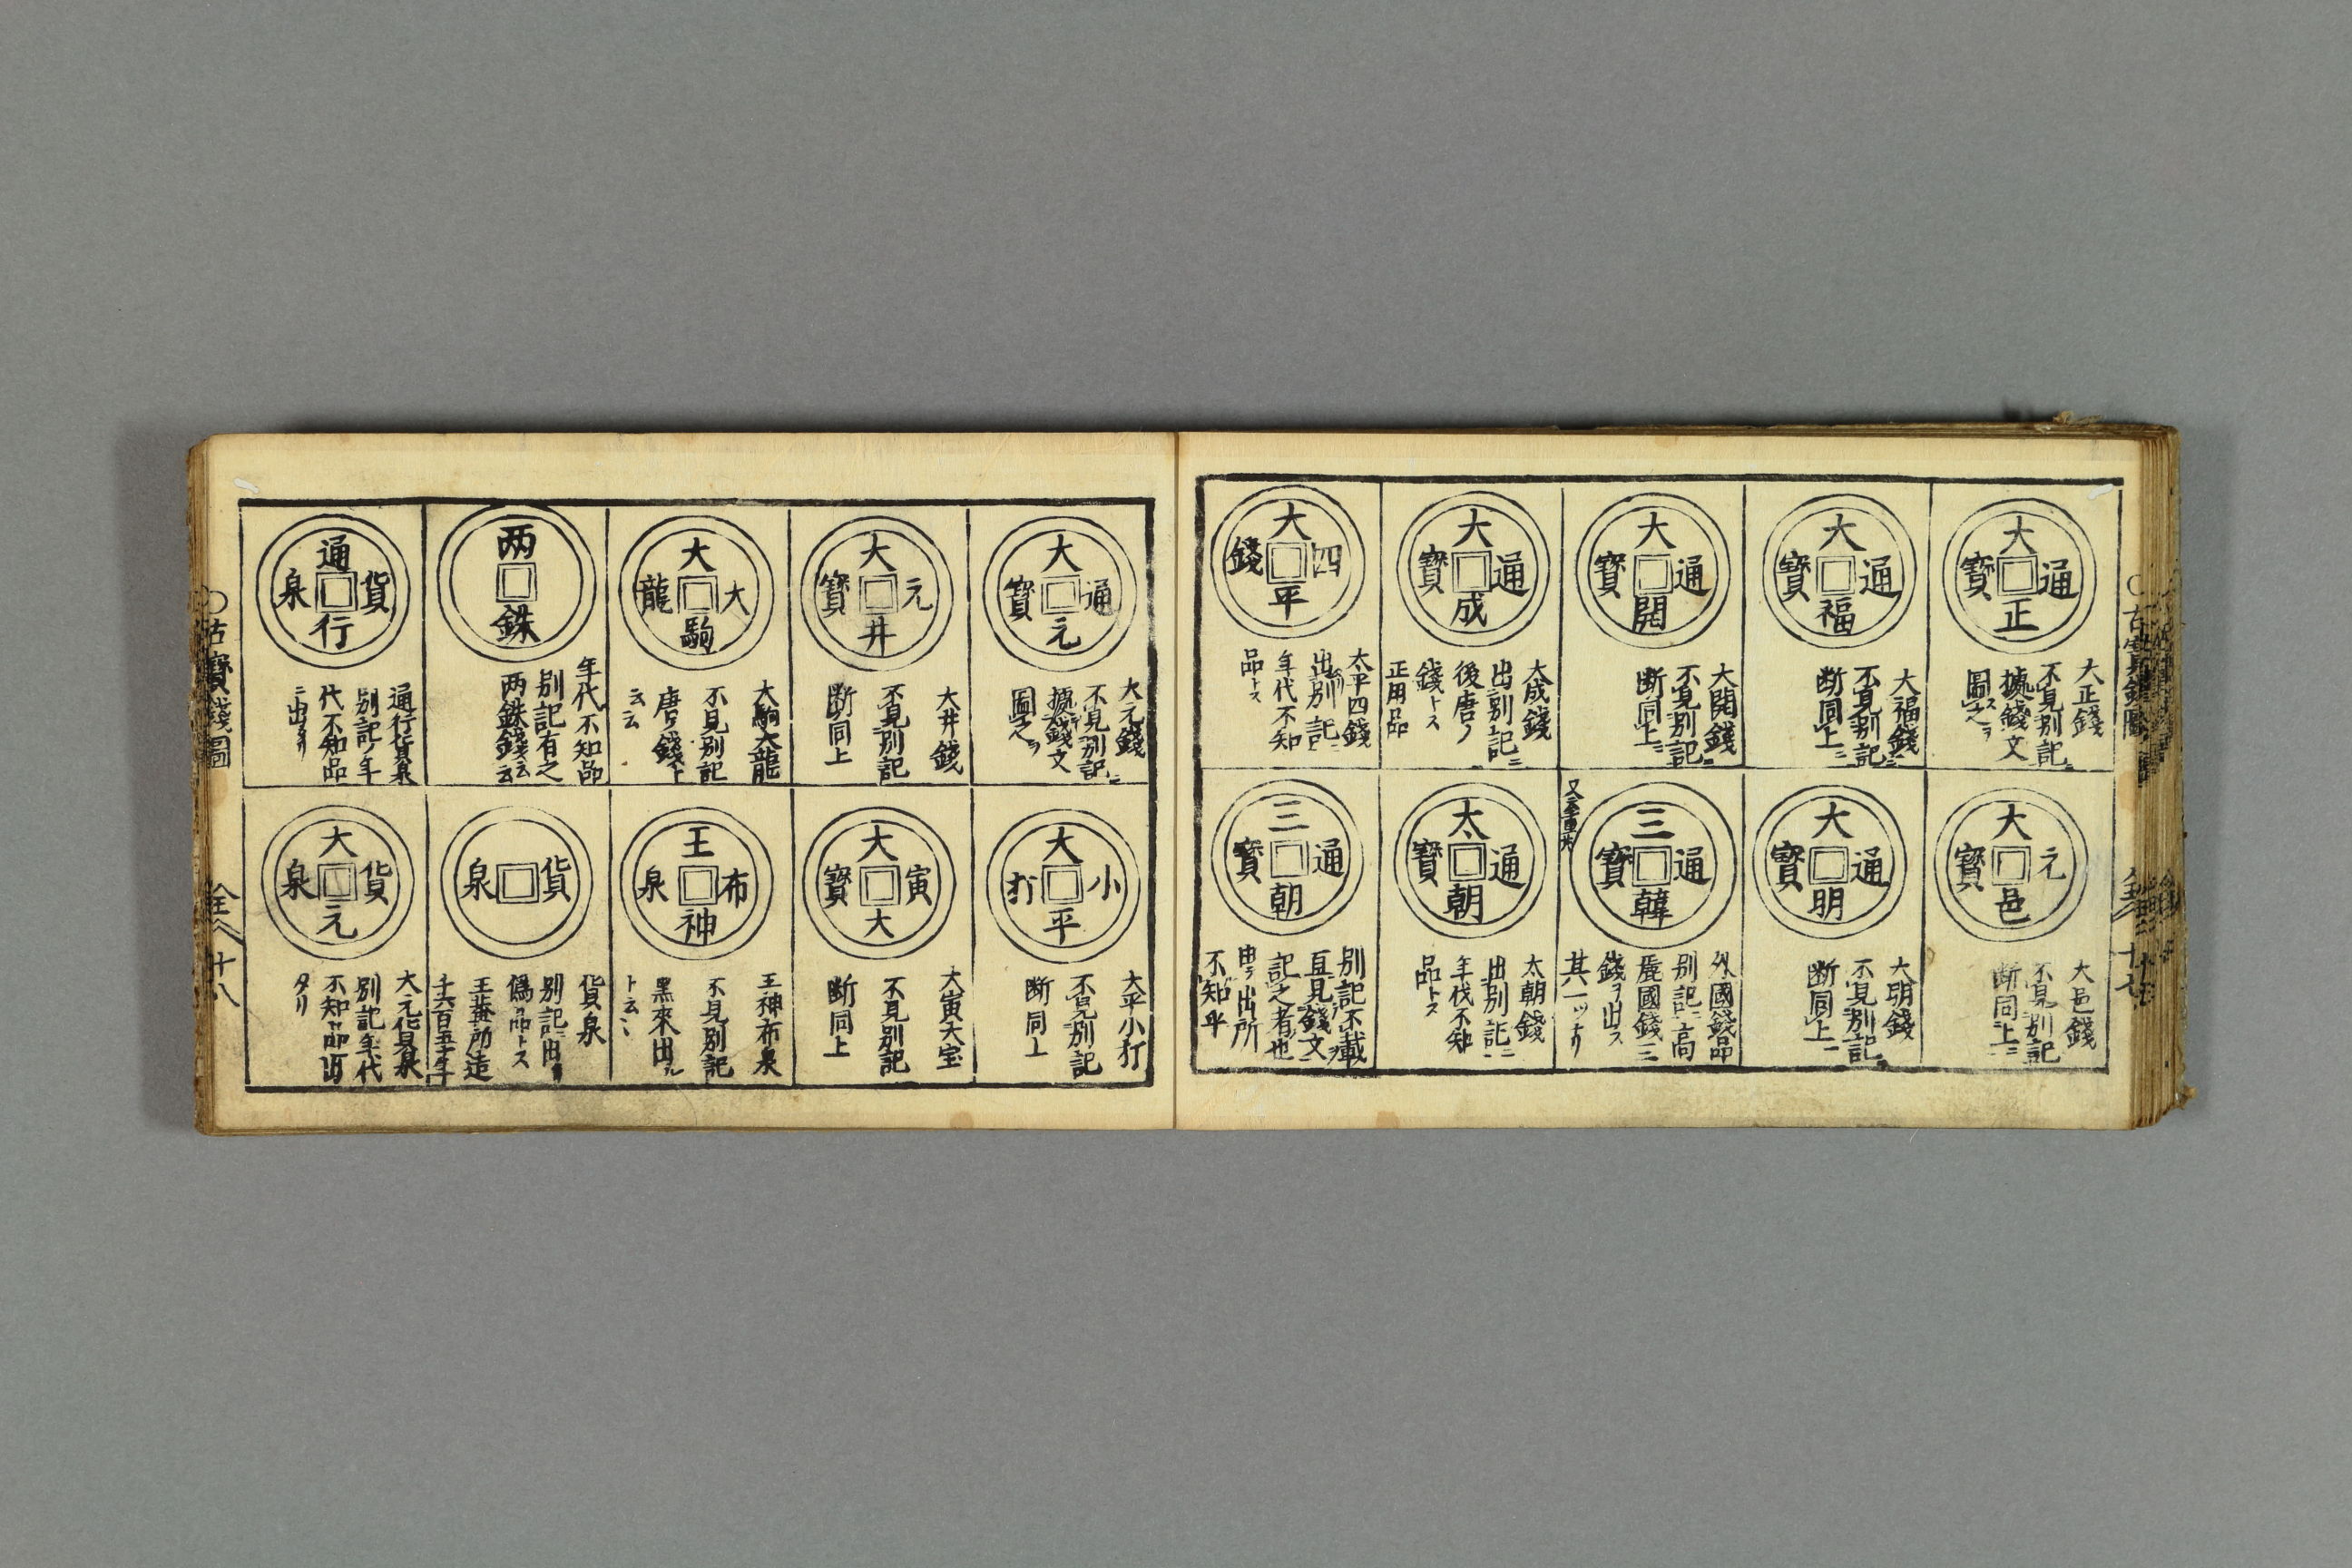 大正通寶
大正錢
不見別記ニ
據錢文
圖ス之ヲ
大福通寶
大福錢
不見別記ニ
断同上ニ
大開通寶
大開錢
不見別記ニ
断同上ニ
大成通寶
大成錢
出別記ニ
後唐ノ
錢トス
正用品
大平四錢
太平四錢
出別記
年代不知
品トス
大邑元寶
大邑錢
不見別記
断同上ニ
大明通寶
大明錢
不見別記
断同上
三韓通寶
外國錢品
別記ニ高
麗國錢三
錢ヲ出ス
其一ツナリ
太朝通寶
太朝錢
出別記ニ
年代不知
品トス
三朝通寶
別記不載
直見錢文
記之者也
出所
不知乎
大元通寶
大元錢
不見別記ニ
據錢文
圖之ヲ
大井元寶
大井錢
不見別記
断同上
大駒大龍
大駒大龍
不見別記
唐ノ錢ト
云云
两銖
年代不知品
別記有之
两銖錢云云
通行貨泉
通行貨泉
別記ノ年
代不知品
ニ出タリ
大平小打
大平小打
不見別記
断同上
大大寅寶
大寅大宝
不見別記
断同上
王神布泉
王神布泉
不見別記
黑來出ル
ト云云
貨泉
貨泉
別記ニ出
偽品トス
王莽所造
千六百五十年
大元貨泉
大元貨泉
別記年代
不知品出
タリ
古寳錢圖
全
十八